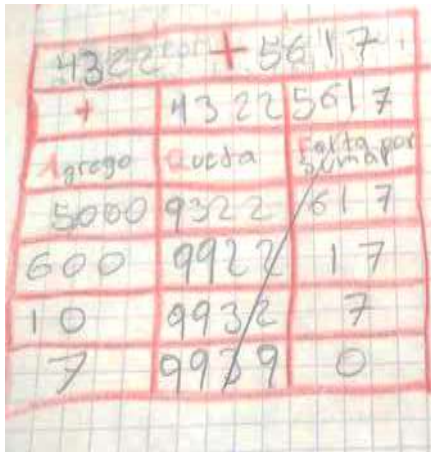 4322 + 5617
+ 4322 5617
Agrego Queda Falta por sumar
5000 9322 617
600 9922 17
10 9932 7
7 9939 0